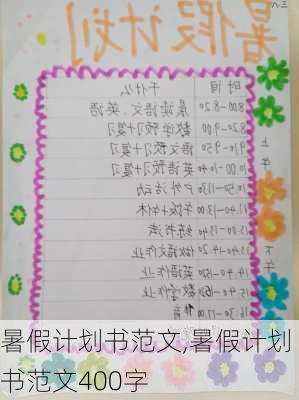 暑假计划
时间 干什么
8:00-8:20 晨读语文、英语
8:20-9:00 数学预习+复习
9:10-9:50 语文预习+复习
10:00-10:40 英语预习+复习
10:50-11:30 户外活动
午饭+午休
练书法
做语文作业
英语作业
数学作业
16:30-17:00
上午
下午
暑假计划书范文,暑假计划
书范文400字